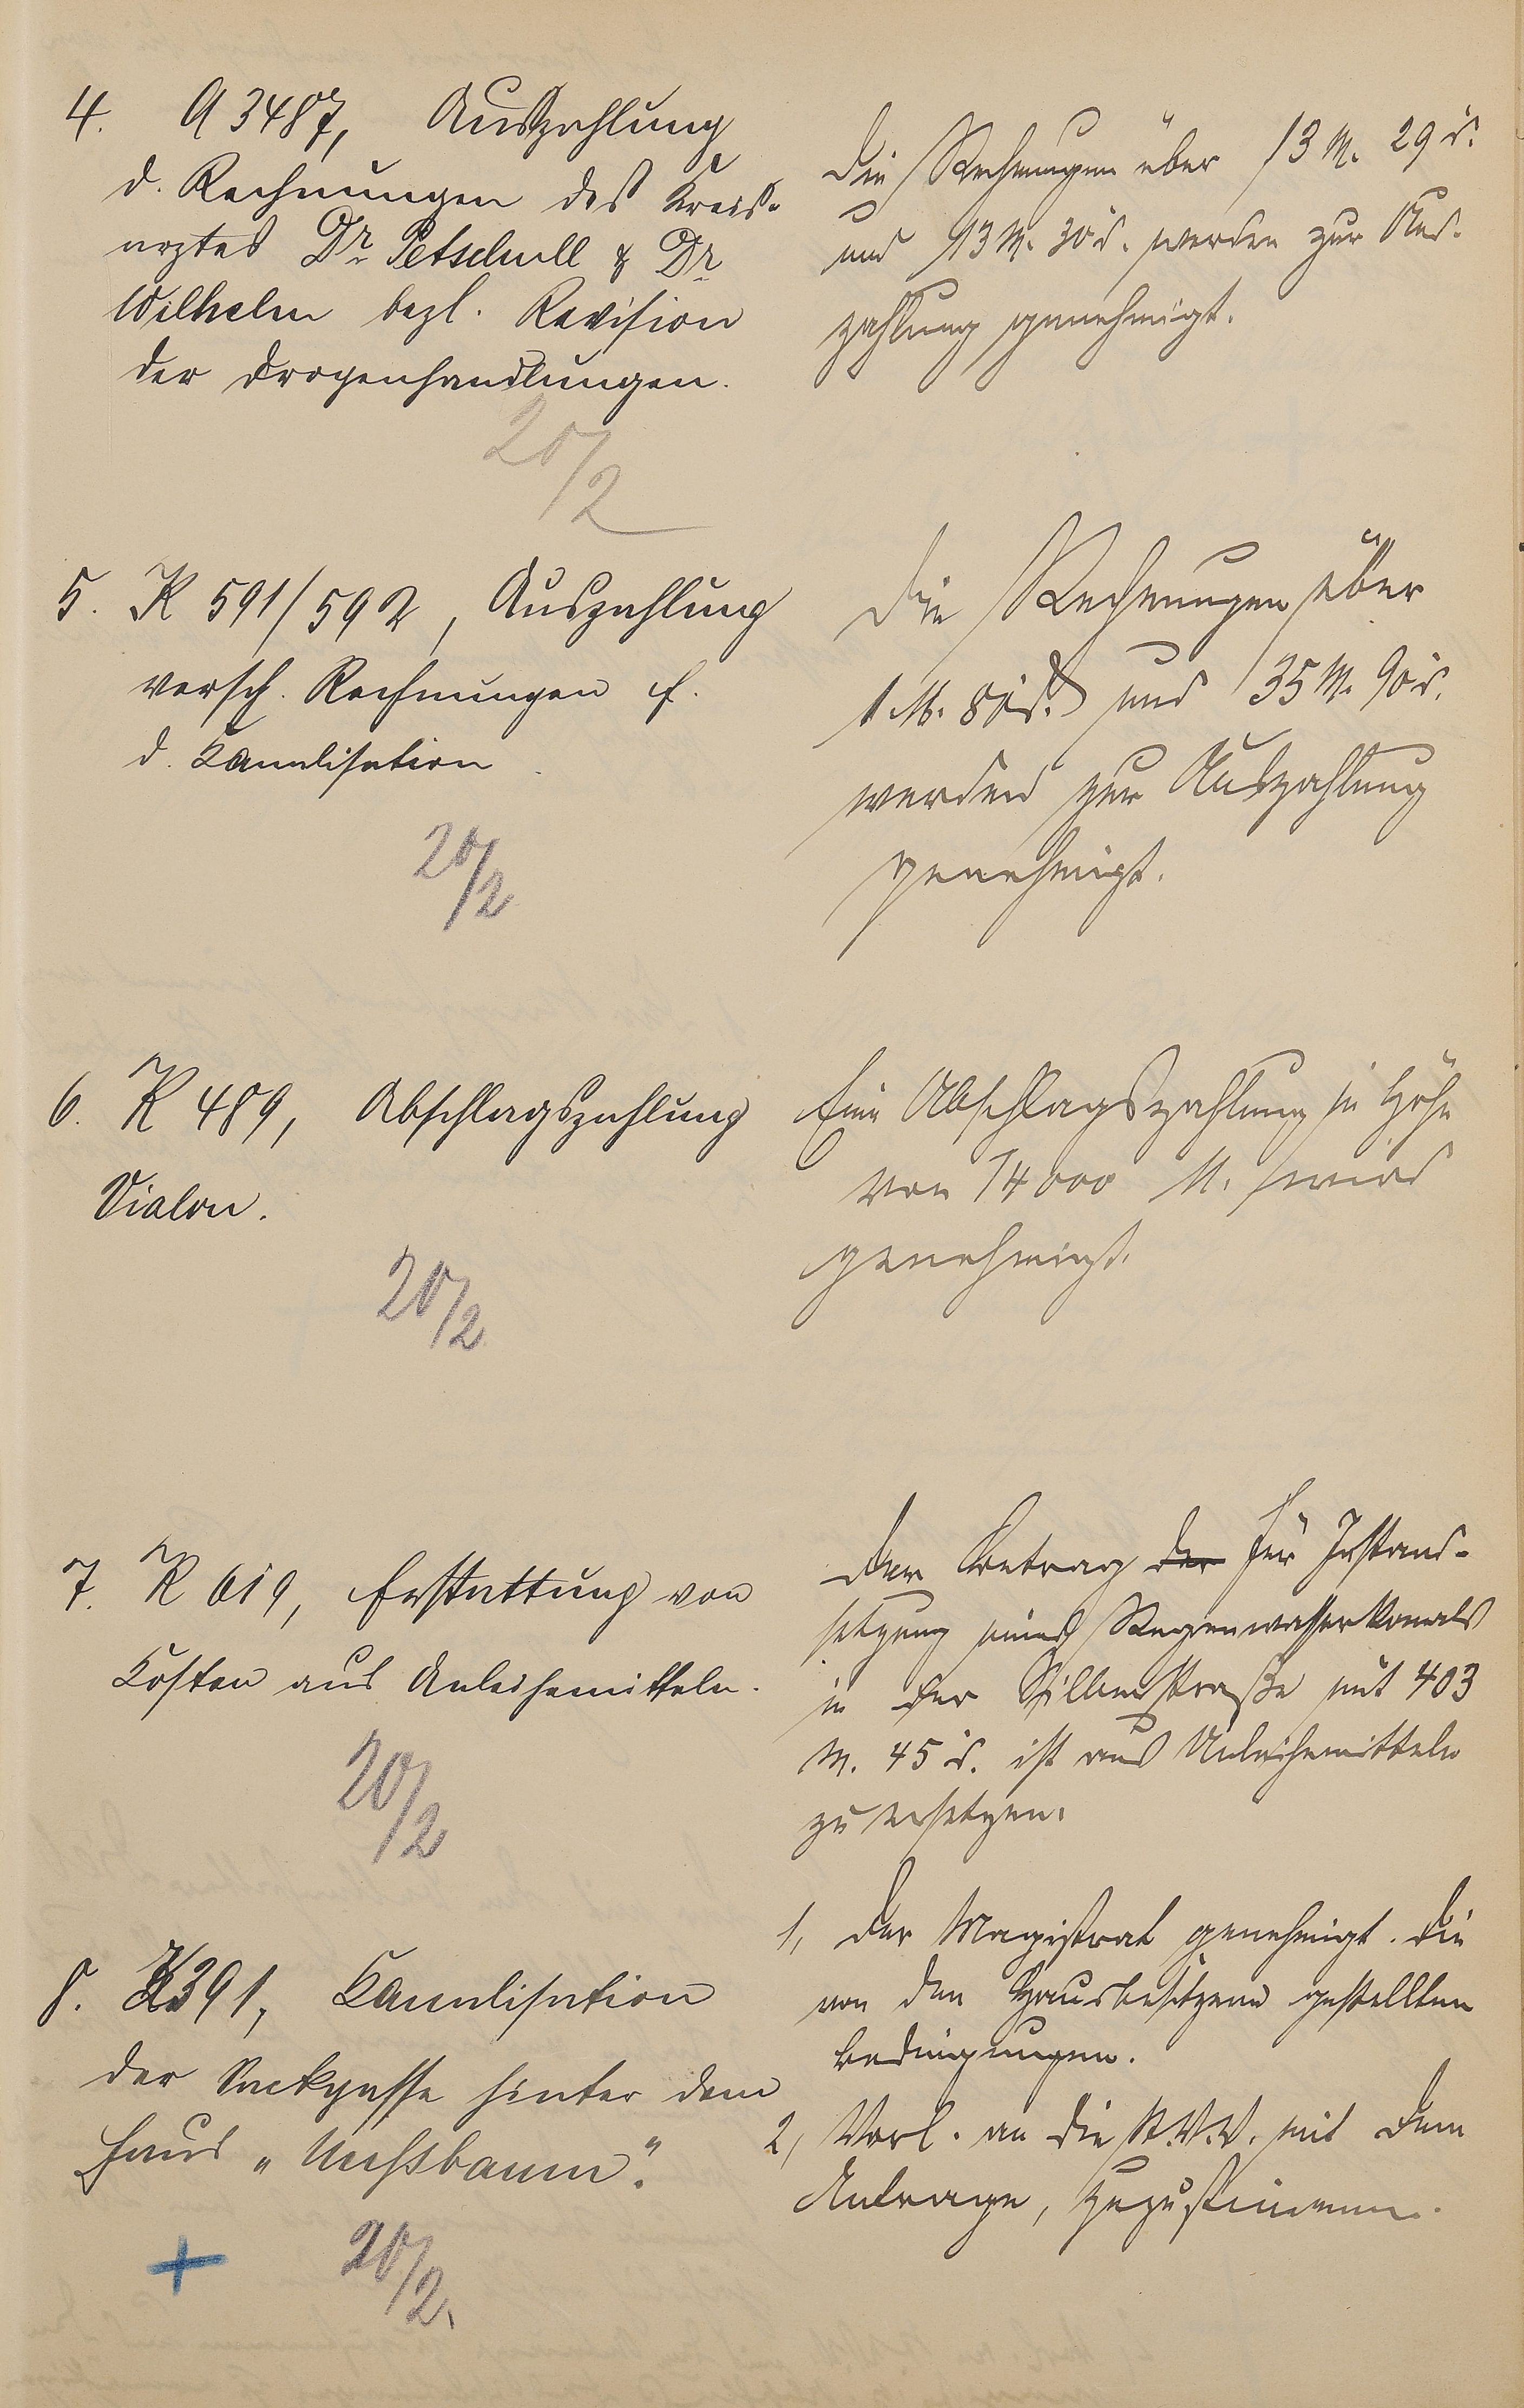 4. A 3487, Auszahlung
d. Rechnungen des Kreis-
arztes Dr. Petschull & Dr.
Wilhelm bezl. Revision
der Drogenhandlungen.
20/2
Die Rechnungen über 13 M. 29 d.
und 13 M. 30 d. werden zur Aus-
zahlung genehmigt.
5. K 591/592, Auszahlung
versch. Rechnungen f.
d. Kanalisation.
20/2
Die Rechnungen über
1 M. 80 d. und 35 M. 90 d.
werden zur Auszahlung
genehmigt.
6. K 489, Abschlagszahlung
Vialon.
20/2
Eine Abschlagszahlung in Höhe
von 14000 M. wird
genehmigt.
7. K 619, Erstattung von
Kosten aus Anleihemitteln.
20/2
Der Betrag der für Instand-
setzung eines Regenwasserkanals
in der straße mit 403
M. 45 d. ist aus Anleihemitteln
zu ersetzen.
8. K391, Kanalisation
der Sackgasse hinter dem
Haus „Nussbaum".
20/2.
1, Der Magistrat genehmigt die
von den Hausbesitzern gestellten
Bedingungen.
2, Vorl. an die St.V.V. mit dem
Antrage, zuzustimmen.